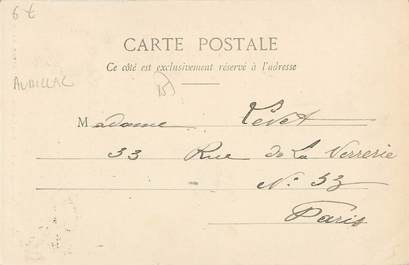 6 €
AURILLAC
CARTE POSTALE
Ce côté est exclusivement réservé à l'adresse
Madame Levet
33 Rue de La Verrerie
No: 33
Paris